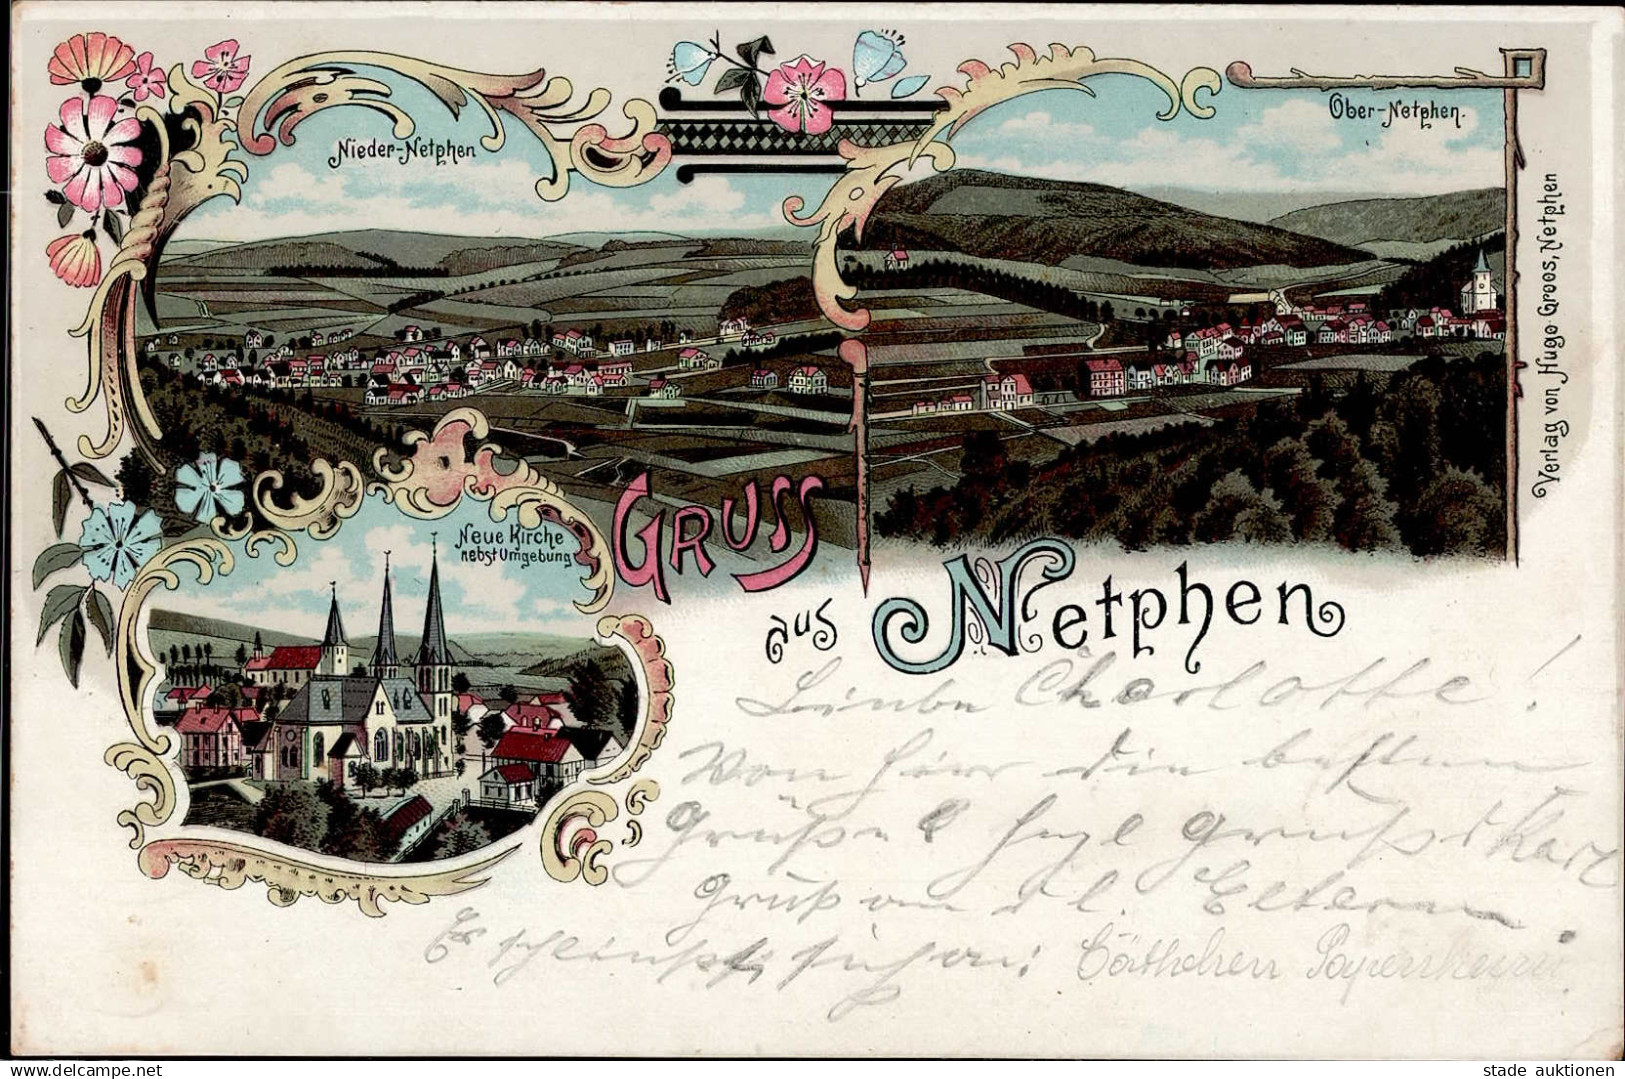 Nieder-Netphen
Ober-Netphen.
Verlag von Hugo Groos, Netphen
Neue Kirche
nebst Umgebung
GRUSS
aus Netphen
Liebe Charlotte!
Von hier die besten
Grüße
Gruß an d l. Eltern.
Es schließt sich an: Käthchen
stade auktionen